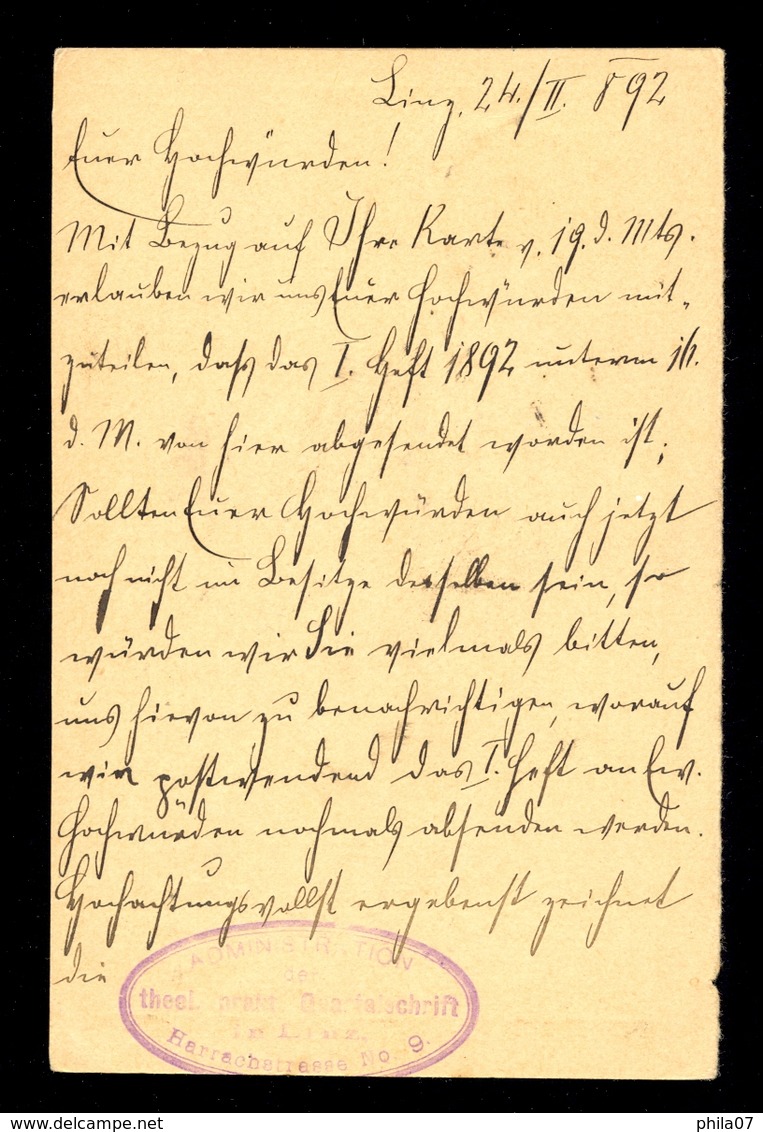 Linz, 24./II. 892
Euer Hochwürden!
Mit Bezug auf Ihre Karte v. 19. d. Mts.
erlauben wir uns Euer Hochwürden mit-
zuteilen, dass das I. Heft 1892 unterm
d. M. von hier abgesendet worden ist.
Sollten Euer Hochwürden auch jetzt
noch nicht im Besitze desselben sein, so
würden wir Sie vielmals bitten,
uns hievon zu benachrichtigen, worauf
wir postwendend das I. Heft an Ew.
Hochwürden nochmals absenden werden.
Hochachtungsvollst ergebenst zeichnet
die
ADMINISTRATION
der
theol. prakt. Quartalschrift
in Linz.
Harrachstrasse No 9.
delcampe.net
phila07